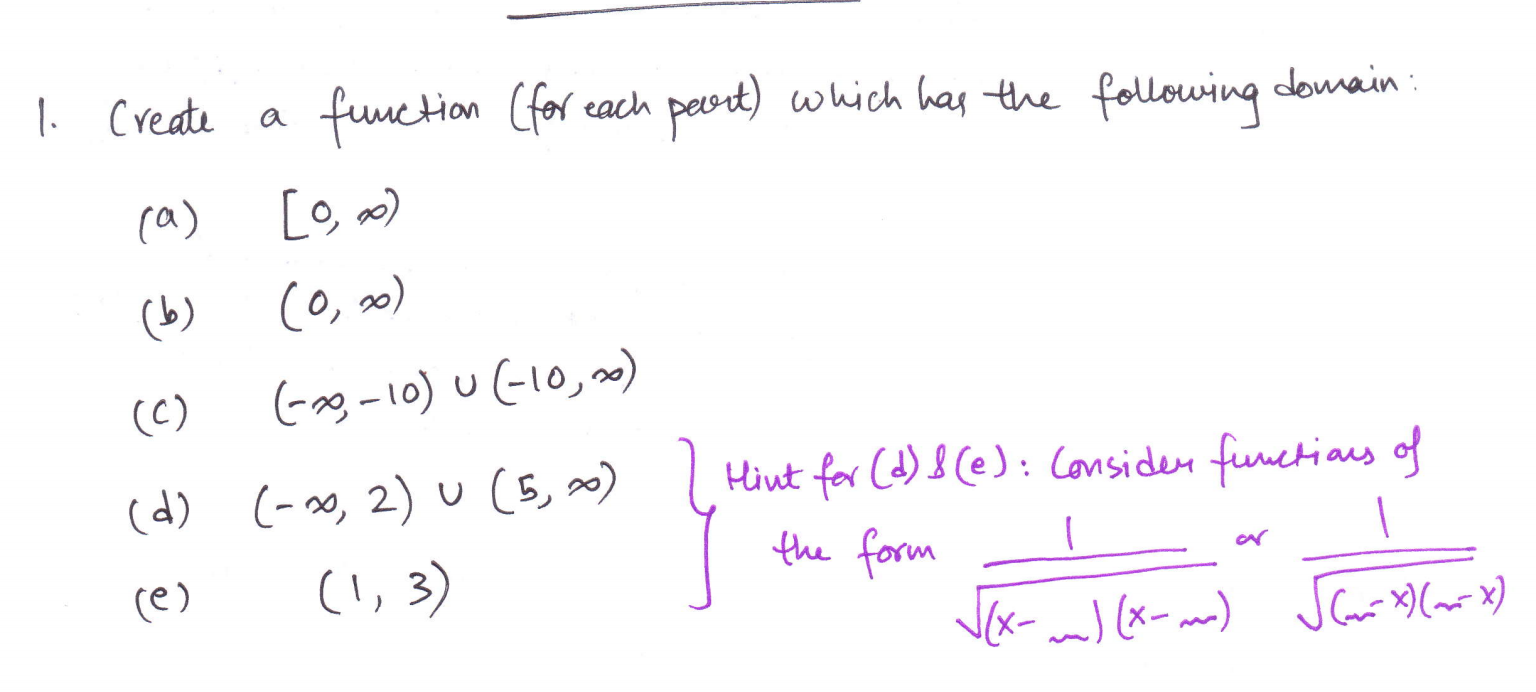 1. Create a function (for each part) which has the following domain:
(a) [0, ∞)
(b) (0, ∞)
(c) (-∞, -10) ∪ (-10, ∞)
(d) (-∞, 2) ∪ (5, ∞)
(e) (1, 3)
Hint for (d) & (e): Consider functions of
the form 1/√((x- __)(x- __)) or 1/√((__ - x)(__ - x))